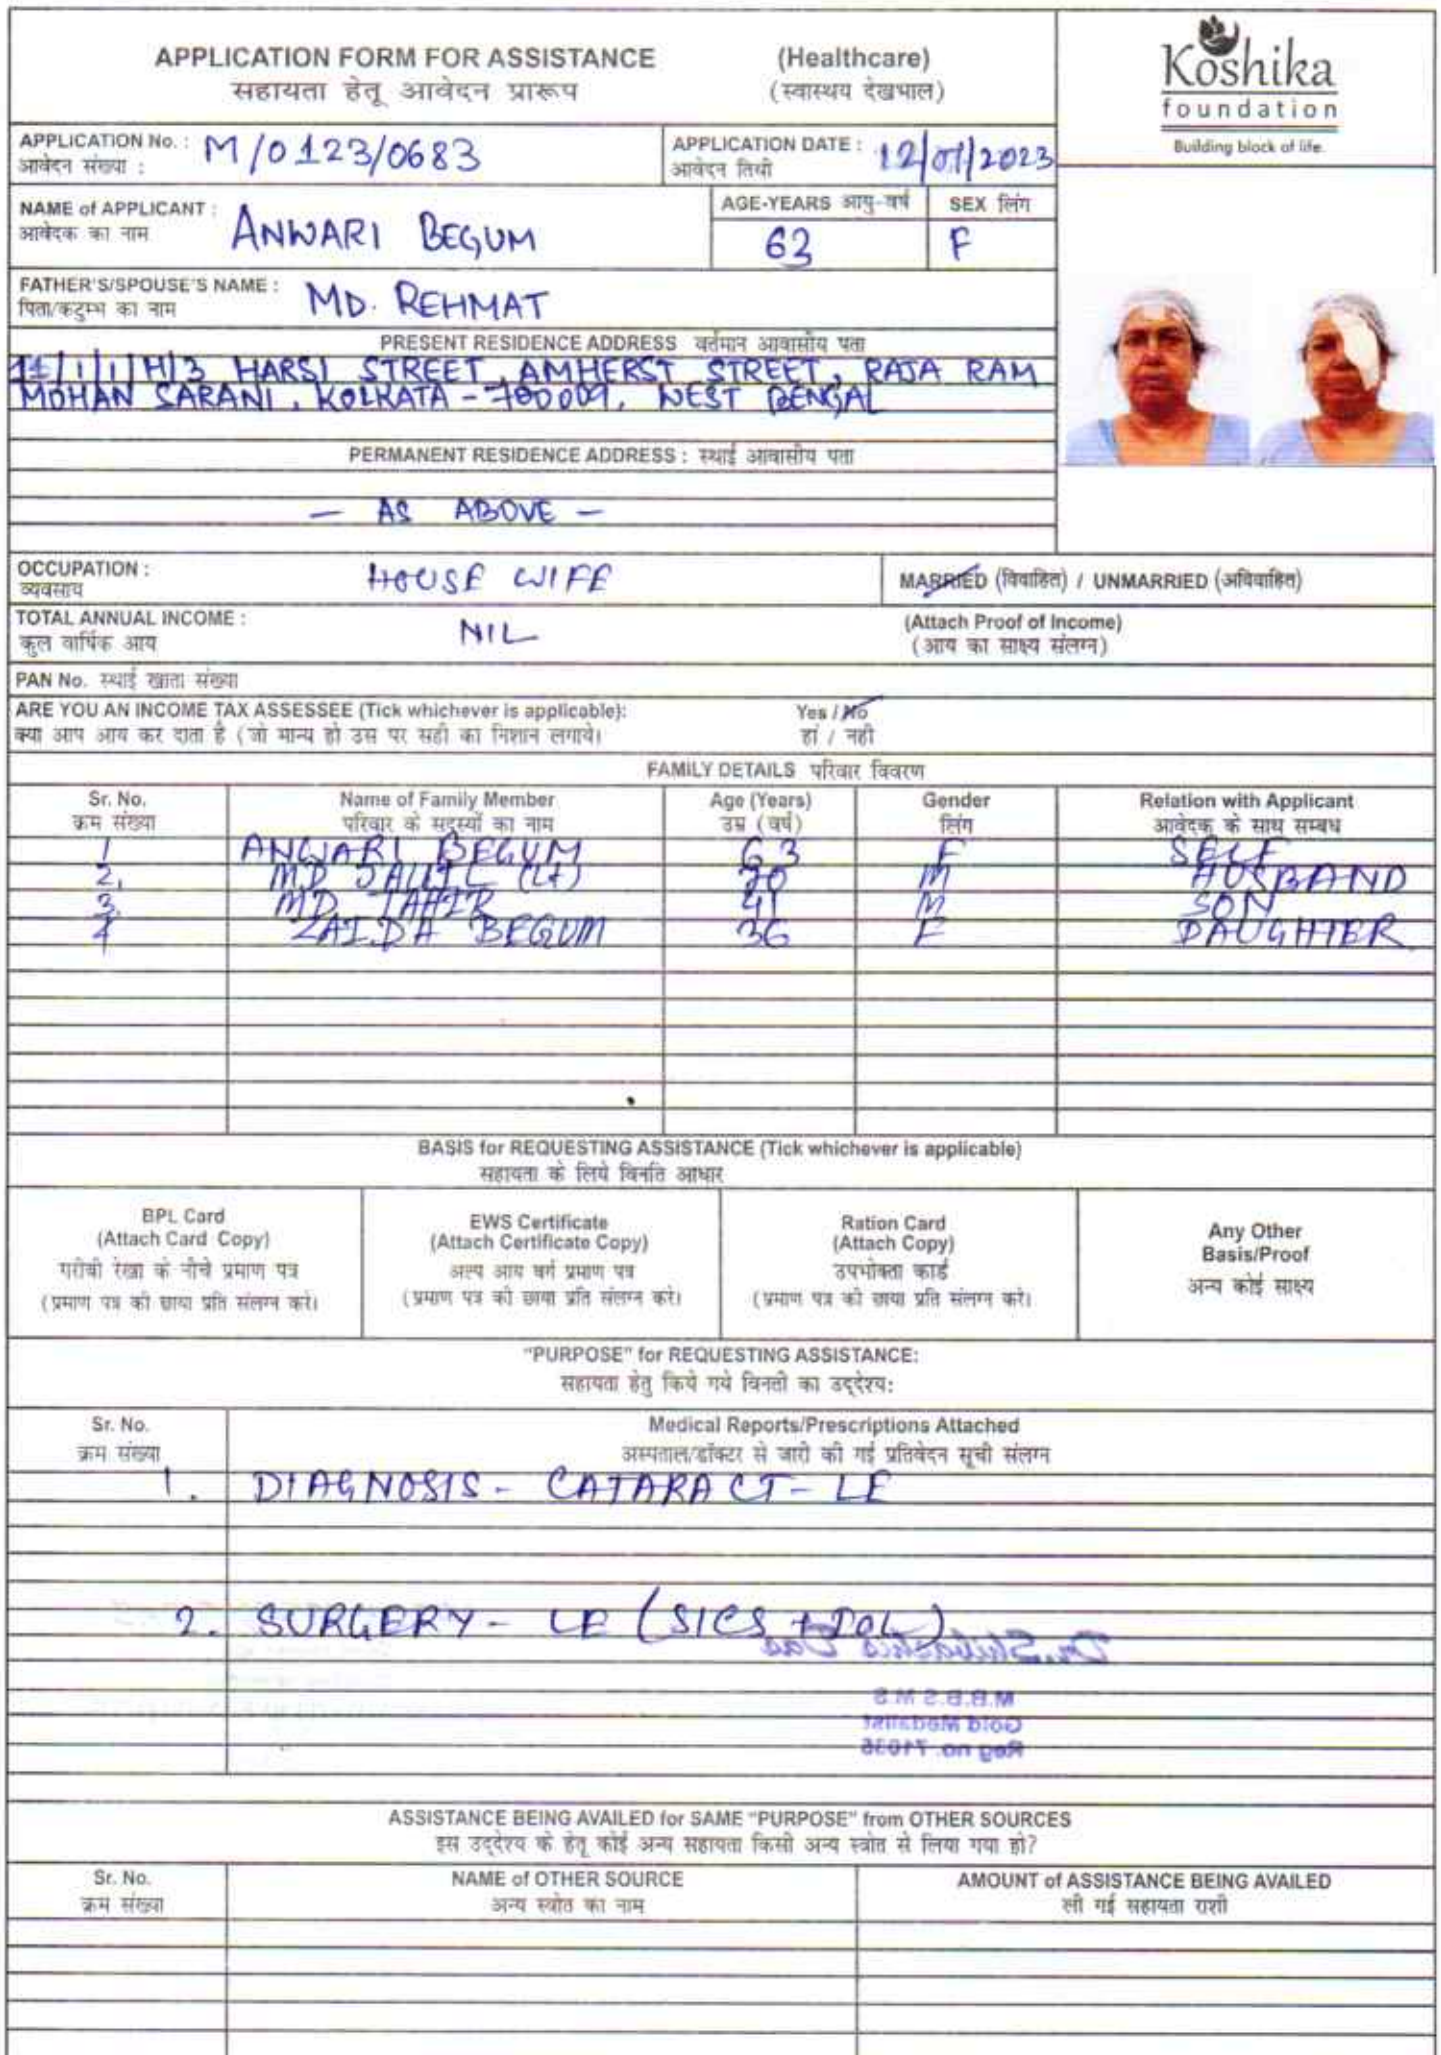 APPLICATION FORM FOR ASSISTANCE (Healthcare)
सहायता हेतू आवेदन प्रारूप (स्वास्थय देखभाल)
Koshika
foundation
Building block of life.
APPLICATION No. : M/0123/0683
आवेदन संख्या :
APPLICATION DATE : 12/01/2023
आवेदन तिथी
NAME of APPLICANT : ANWARI BEGUM
आवेदक का नाम
AGE-YEARS आयु-वर्ष SEX लिंग
63 F
FATHER'S/SPOUSE'S NAME : MD. REHMAT
पिता/कटुम्भ का नाम
PRESENT RESIDENCE ADDRESS वर्तमान आवासीय पता
11/1/1/H/3 HARSI STREET, AMHERST STREET, RAJA RAM
MOHAN SARANI, KOLKATA - 700009, WEST BENGAL
PERMANENT RESIDENCE ADDRESS : स्थाई आवासीय पता
- AS ABOVE -
OCCUPATION : HOUSE WIFE
व्यवसाय
MARRIED (विवाहित) / UNMARRIED (अविवाहित)
TOTAL ANNUAL INCOME : NIL
कुल वार्षिक आय
(Attach Proof of Income)
(आय का साक्ष्य संलग्न)
PAN No. स्थाई खाता संख्या
ARE YOU AN INCOME TAX ASSESSEE (Tick whichever is applicable): Yes / No
क्या आप आय कर दाता है (जो मान्य हो उस पर सही का निशान लगाये। हां / नही
FAMILY DETAILS परिवार विवरण
Sr. No. Name of Family Member Age (Years) Gender Relation with Applicant
क्रम संख्या परिवार के सदस्यों का नाम उम्र (वर्ष) लिंग आवेदक के साथ सम्बध
1 ANWARI BEGUM 63 F SELF
2. MD (Lt) 70 M HUSBAND
3. MD TAHIR 41 M SON
4 ZAIDA BEGUM 36 F DAUGHTER
BASIS for REQUESTING ASSISTANCE (Tick whichever is applicable)
सहायता के लिये विनति आधार
BPL Card
(Attach Card Copy)
गरीबी रेखा के नीचे प्रमाण पत्र
(प्रमाण पत्र की छाया प्रति संलग्न करे।
EWS Certificate
(Attach Certificate Copy)
अल्प आय वर्ग प्रमाण पत्र
(प्रमाण पत्र की छाया प्रति संलग्न करे।
Ration Card
(Attach Copy)
उपभोक्ता कार्ड
(प्रमाण पत्र की छाया प्रति संलग्न करे।
Any Other
Basis/Proof
अन्य कोई साक्ष्य
"PURPOSE" for REQUESTING ASSISTANCE:
सहायता हेतु किये गये विनती का उद्देश्य:
Sr. No. Medical Reports/Prescriptions Attached
क्रम संख्या अस्पताल/डॉक्टर से जारी की गई प्रतिवेदन सूची संलग्न
1. DIAGNOSIS - CATARACT - LE
2. SURGERY - LE (SICS + IOL)
Dr. Shibashis Das
M.B.B.S M.S
Gold Medalist
Reg no. 71036
ASSISTANCE BEING AVAILED for SAME "PURPOSE" from OTHER SOURCES
इस उद्देश्य के हेतू कोई अन्य सहायता किसी अन्य स्त्रोत से लिया गया हो?
Sr. No. NAME of OTHER SOURCE AMOUNT of ASSISTANCE BEING AVAILED
क्रम संख्या अन्य स्त्रोत का नाम ली गई सहायता राशी